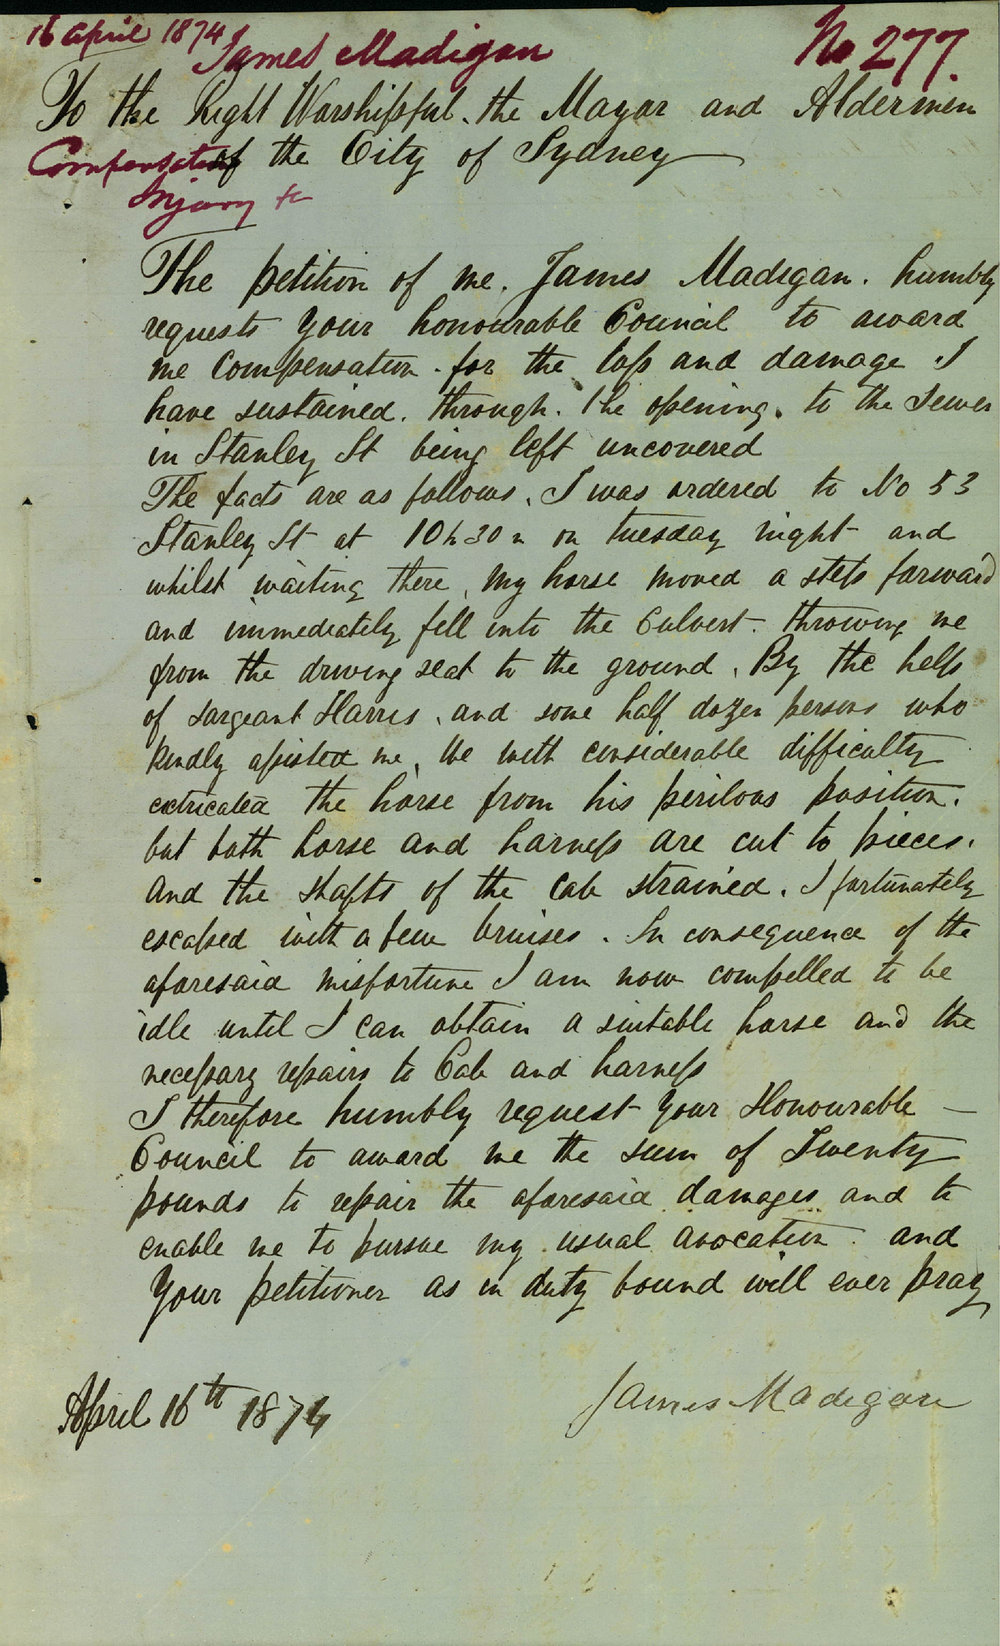 16 April 1874
James Madigan
No 277.
To the Right Worshipful. the Mayor and Aldermen
of the City of Sydney
Compensation
Injury &c
The petition of me. James Madigan. humbly
requests your honourable Council to award
me compensation. for the loss and damage I
have sustained. through. the opening. to the Sewer
in Stanley St being left uncovered
The facts are as follows. I was ordered to No 53
Stanley St at 10h30m on tuesday night and
whilst waiting there, my horse moved a step forward
and immediately fell into the Culvert - throwing me
from the driving seat to the ground. By the help
of sargeant Harris, and some half dozen persons who
kindly assisted me, We with considerable difficulty
extricated the horse from his perilous position.
but both horse and harness are cut to pieces.
and the shafts of the cab strained. I fortunately
escaped with a few bruises. In consequence of the
aforesaid misfortune I am now compelled to be
idle until I can obtain a suitable horse and the
necessary repairs to Cab and harness
I therefore humbly request your Honourable -
Council to award me the sum of Twenty
pounds to repair the aforesaid damages and to
enable me to pursue my usual avocation. and
Your petitioner as in duty bound will ever pray
James Madigan
April 16th 1874